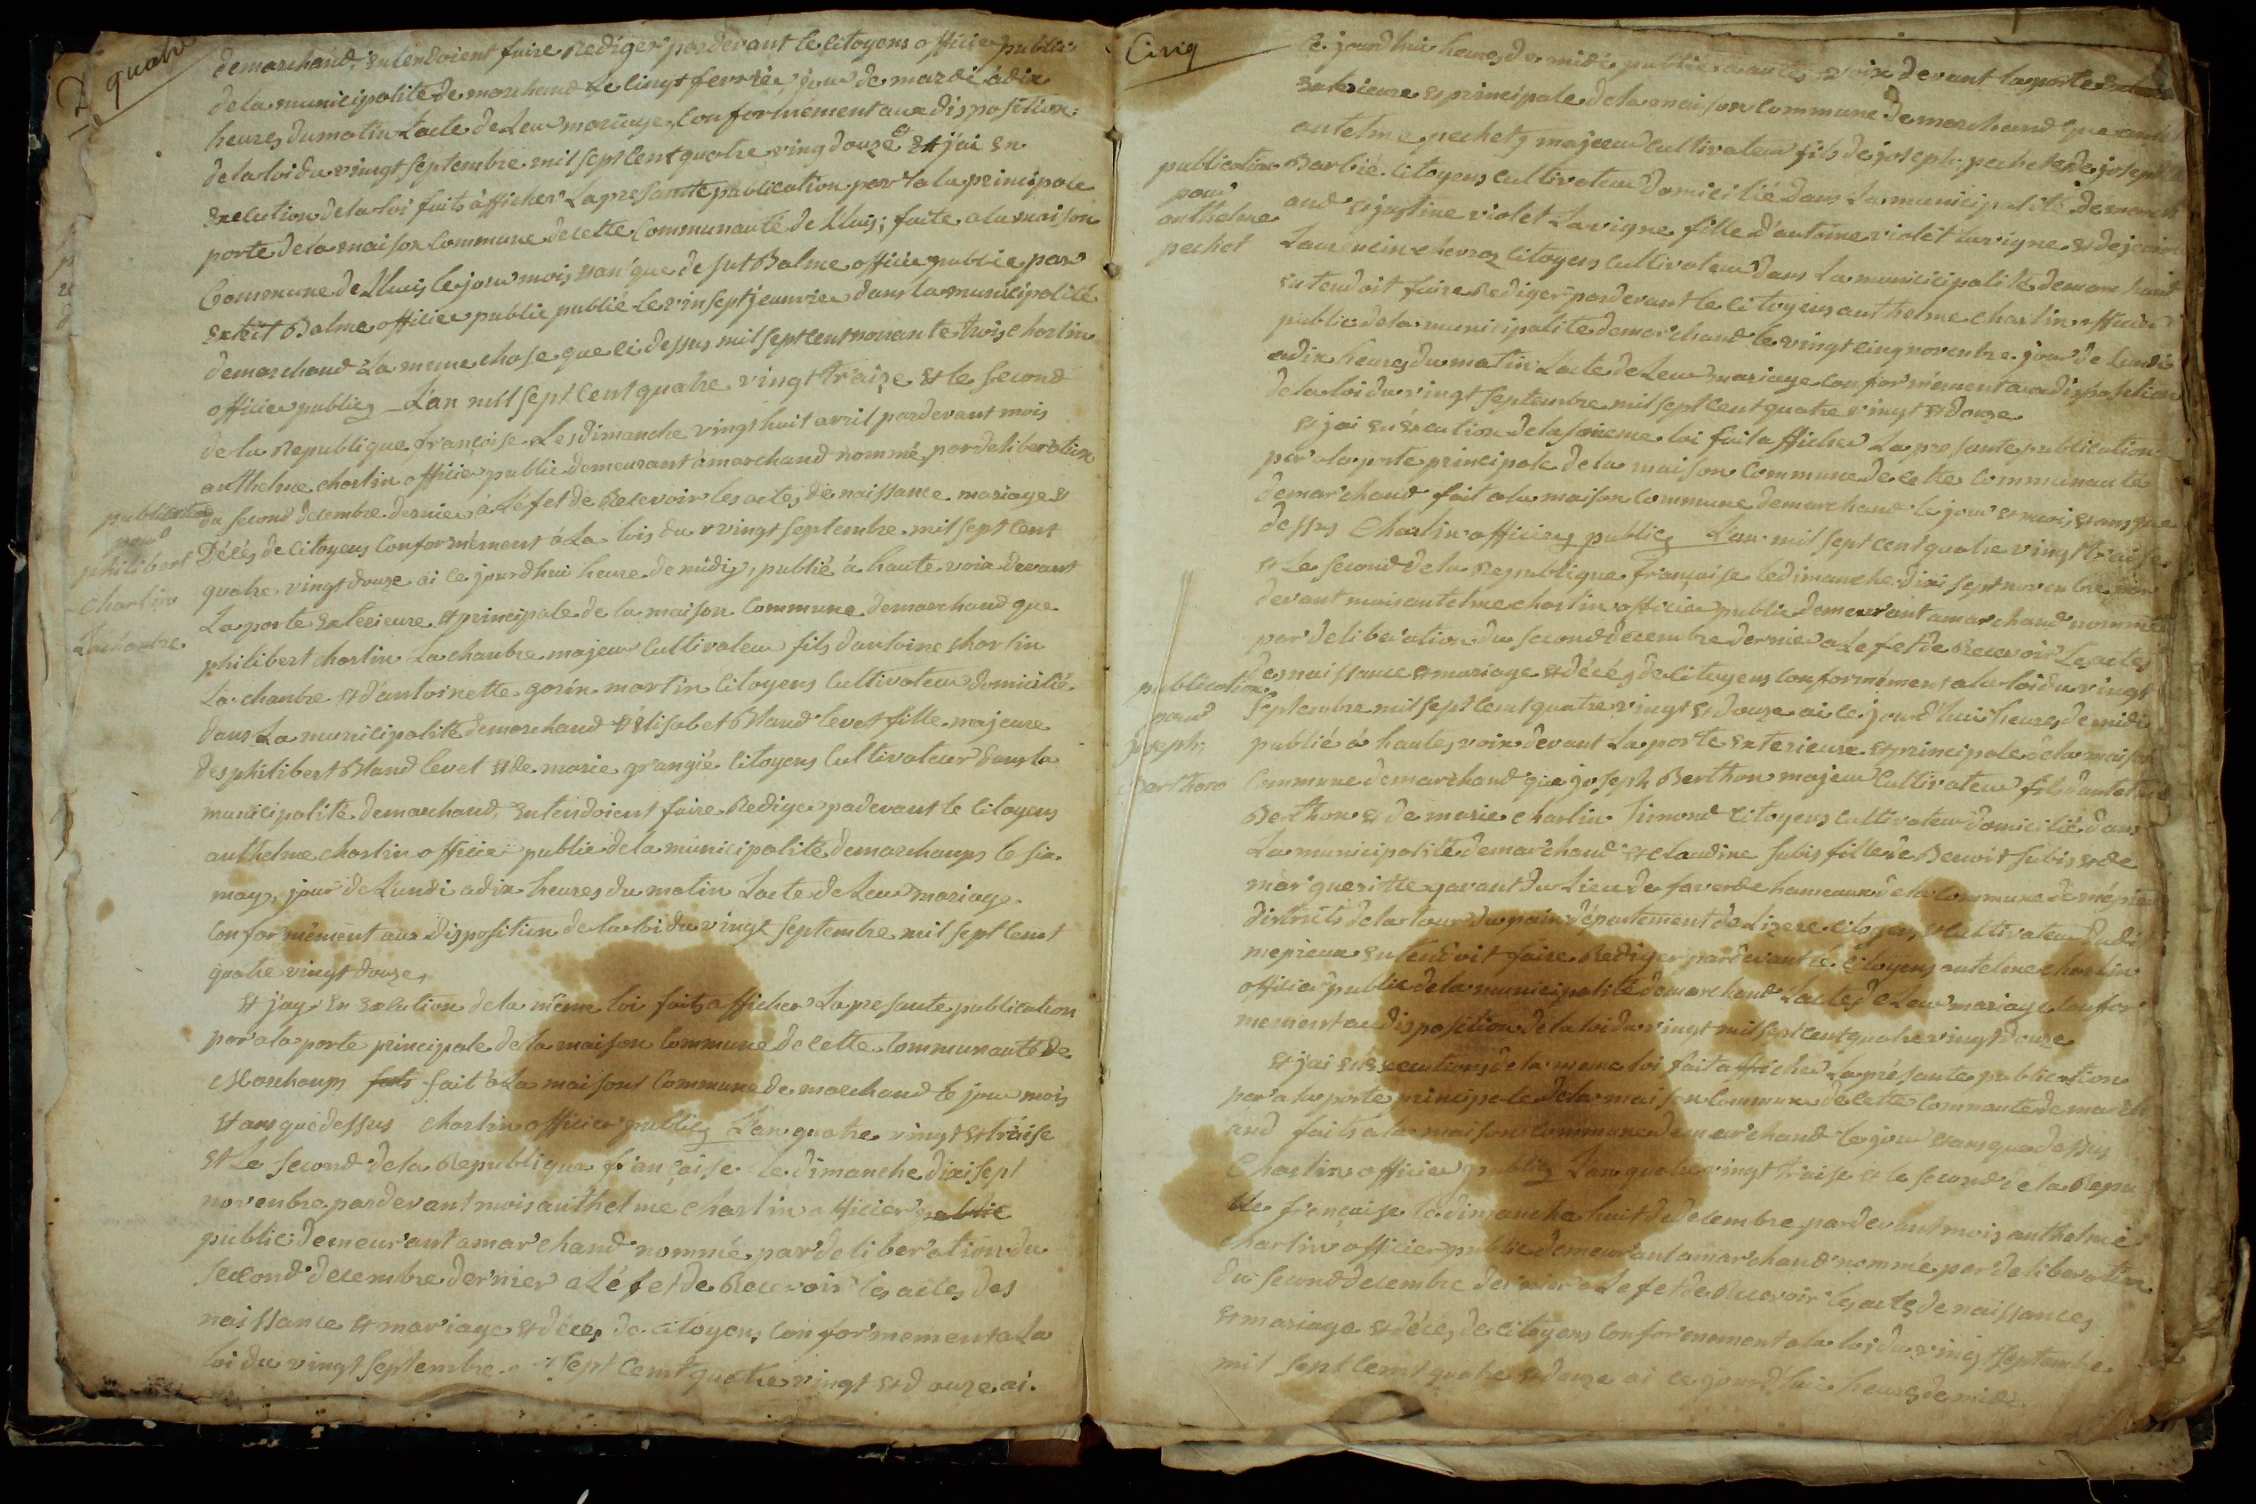 quatre
demarchand, entendoient faire Rediger pardevant le citoyens officier public
dela municipalité de marchand Le cinqt ferrier, jour de mardi à dix
heures du matin Lacte de Leur mariage, Conformement aux disposition
de la loi du vingt septembre mil sept cent quatre ving douze et j'ai en
execution dela loi faits àfficher La presante publication par la principale
porte dela maison Commune decette Communauté de Lluis; faite a la maison
Commune de Lluis le jour mois et an que desut Balme officier public par
exteit Balme officier public publié Le vinsept jeanvier dans la municipalité
demarchand La meme chose que ci dessus mil sept cent nonante trois chartin
officier public L'an mil sept cent quatre vingt traize et le second
de la Republique françoise Les dimanche vingt huit avril pardevant mois
anthelme chartin officier public demeurant àmarchand nommé par deliberation
publication du second decembre dernier à Léfet de Recevoir les actes de naissance mariage et
pour
philibert Décés de citoyens Conformément à La lois du vingt septembre mil sept cent
chartin quatre vingt douze ai ce jourdhui heure de midis, publié à haute voix devant
La porte exterieure et principale de la maison Commune demarchand que
Lachanbre philibert chartin La chanbre majeur Cultivateur fils dantoine chartin
La chanbre et d'antoinette gorin martin Citoyens Cultivateur domicilié
dans La municipalité demarchand et élisabet Bland levet fille majeure
des philibert Bland levet et de marie grangié Citoyens Cultivateur dans la
municipalité demarchand, entendoient faire Rediger padevant le Citoyens
anthelme chartin officier public dela municipalité demarchamps le six
may, jour de Lundi a dix heures du matin Lacte de Leur mariage
Conformément aux disposition de la loi du vingt septembre mil sept cent
quatre vingt douze,
et j'ay en exécution dela même loi faits afficher La presante publication
par ala porte principale dela maison Commune decette Communauté de
Marchamps faits fait à La maisont Commune de marchand le jour mois
et ans que dessus chartin officier public L'an quatre vingt et traise
et Le second dela Republique françaoise le dimanche dixisept
novenbre pardevant mois anthelme chartin officier public
public demeurant amarchand nommé par deliberation du
second decembre dernier a Léfet de Recevoir les actes des
naissance et mariage et décés de citoyens, Conformement a La
loi du vingt septembre sept Cent quatre vingt et douze ai
Cinq
ce jourdhui heures de midi publié a aute voix devant la porte
exterieure et principale dela maison Commune demarchand que
antelme pechet majeur Cultivateur fils de joseph pechet et de
publication Barbié Citoyens Cultivateur domicilié dans La municipalité demarch
pour
anthelme and et justine violet Lavigne fille d'antoine violet Lavigne et de
pechet Citoyens Cultivateur dans La municipalité demarchand
entendoit faire Rediger pardevant le Citoyens anthelme chartin officier
public dela municipalité demarchand le vingt cinq novenbre jour de lundi
adix heures du matin Lacte de Leur mariage Conformément aux disposition
dela loi du vingt septembre mil sept cent quatre vingt et douze
et jai en éxécution dela loi fait afficher La presante publication
par ala porte principale dela maison Commune de cette Communauté
demarchand fait ala maison Commune demarchand le jour et mois, et ans que
dessus Chartin officier public L'an mil sept cent quatre vingt traise
et Le second dela Republique françoise le dimanche dixi sept novenbre par
devant mois antelme chartin officier public demeurant amarchand nommé
par deliberation du second decembre dernier a Lefet de Recevoir Les actes
des naissance et mariage et décés de citoyens Conformément a la loi du vingt
publication septembre mil sept cent quatre vingt et douze ai ce jourd'hui heures de midi
pour
joseph publié à hautes voix devant La porte exterieure et principale dela maison
Berthon Commune demarchand que joseph Berthon majeur Cultivateur fils
Berthon et de marie chartin Simond Citoyens Cultivateur domicilié dans
La municipalité demarchand et claudine Subis fille de Benoit Subis et de
marguerite gavant du Lieu de faverde hameaux dela Commune de mépieu
distrits dela tour du pain département de Lizere Citoyens et Cultivateur dudi
mepieux entendoit faire Rediger pardevant le Citoyens antelme chartin
officier public dela municipalité demarchand Lactes de Leur mariage Confor
mement au disposition dela loi du vingt mil sept cent quatre vingt douze
et jai en execution dela meme loi fait afficher La présante publication
par ala porte principale dela maison Commune decette Commauté demarch
and faits ala maison Commune demarchand le jour et ans que dessus
Chartin officier public L'an quatre vingt traise et le second de la Repu
ble françaoise le dimanche huit de decembre pardevant mois anthelme
chartin officier public demeurant amarchand nommé par deliberation
du second decembre dernier a Lefet de Recevoir les actes de naissances
et mariage et décés de citoyens Conformément a la loi du vingt septembre
mil sept cent quatre et douze ai ce jourd'hui heures de midi